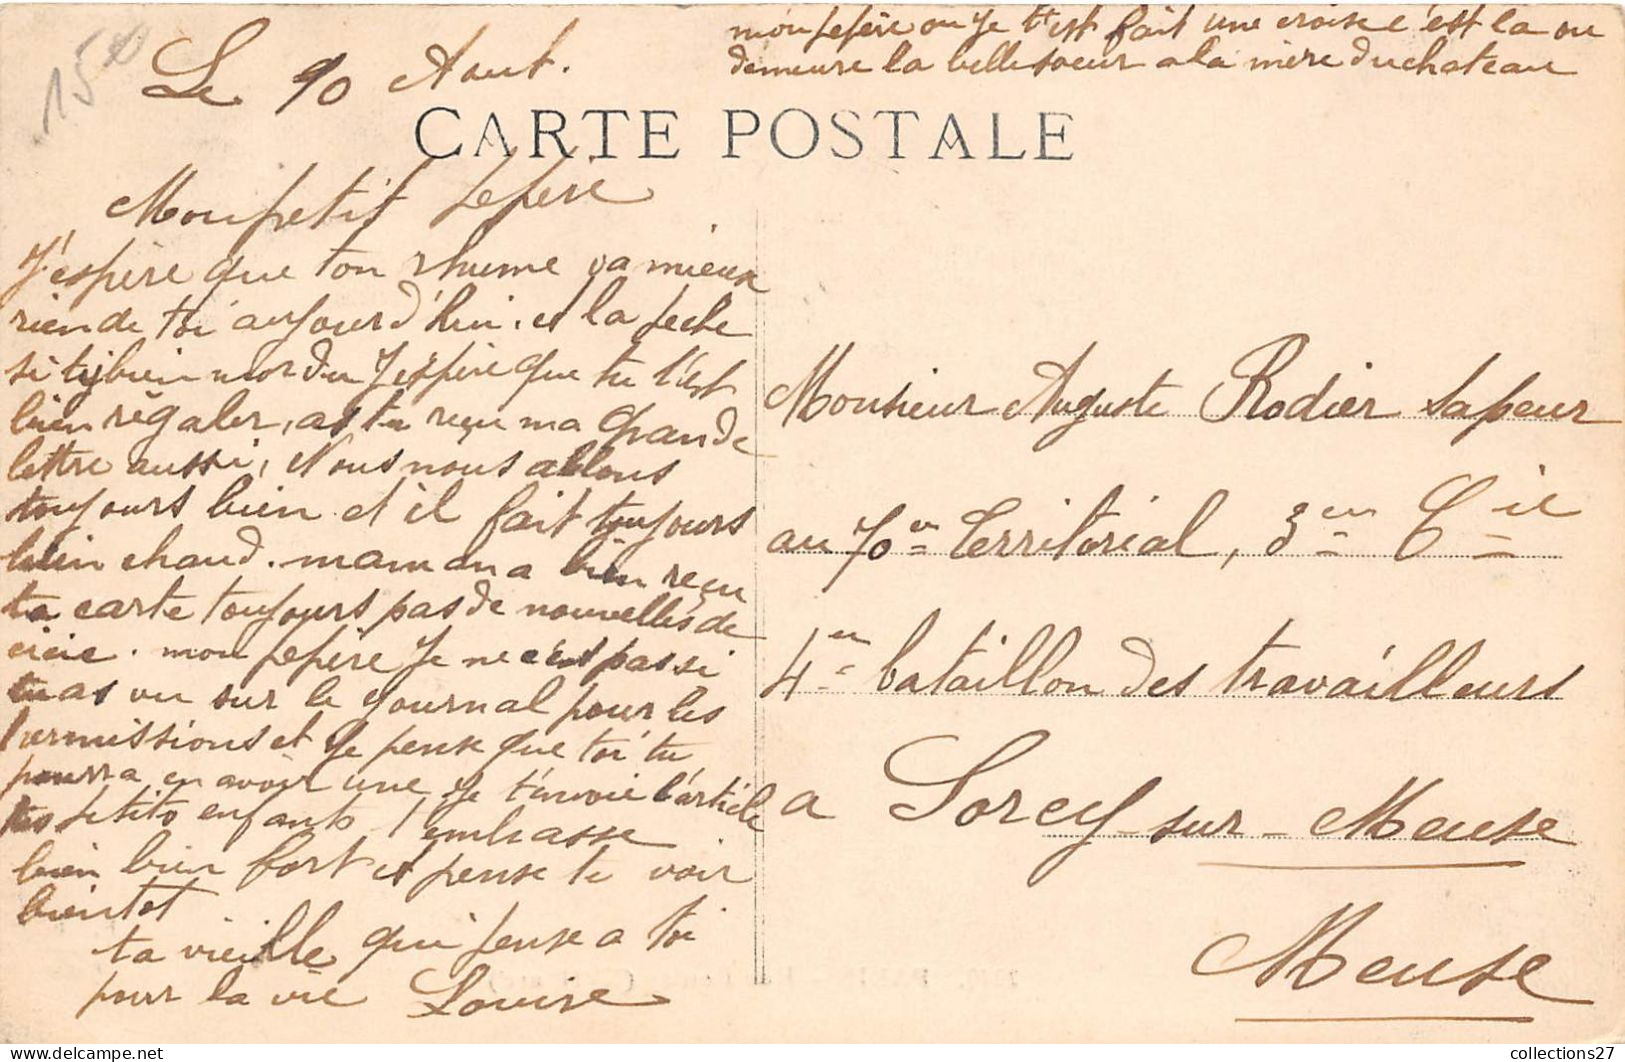 mon pepère ou je t'est fait une croise c'est la ou
demeure la belle soeur a la mère du chateau
15 00
Le 10 Aout.
CARTE POSTALE
Mon petit pepère
J'espère que ton rhume va mieux
rien de toi aujourd'hui. et la peche
si tu bien mordu J'espère que tu t'est
bien régaler, as tu reçu ma grande
lettre aussi, Nous nous allons
toujours bien et il fait toujours
bien chaud. maman a bien reçu
ta carte toujours pas de nouvelles de
mon pepère Je ne c'est pas si
tu as vu sur le journal pour les
permissions et je pense que toi tu
pourra en avoir une je t'envoie l'article
tes petits enfants t'embrasse
bien bien fort et pense te voir
bientot
ta vieille qui pense a toi
pour la vie Louise
Monsieur Auguste Rodier Sapeur
au 70em Territorial, 3em Cie
4em bataillon des travailleurs
a Sorcy-sur-Meuse
Meuse
collections27